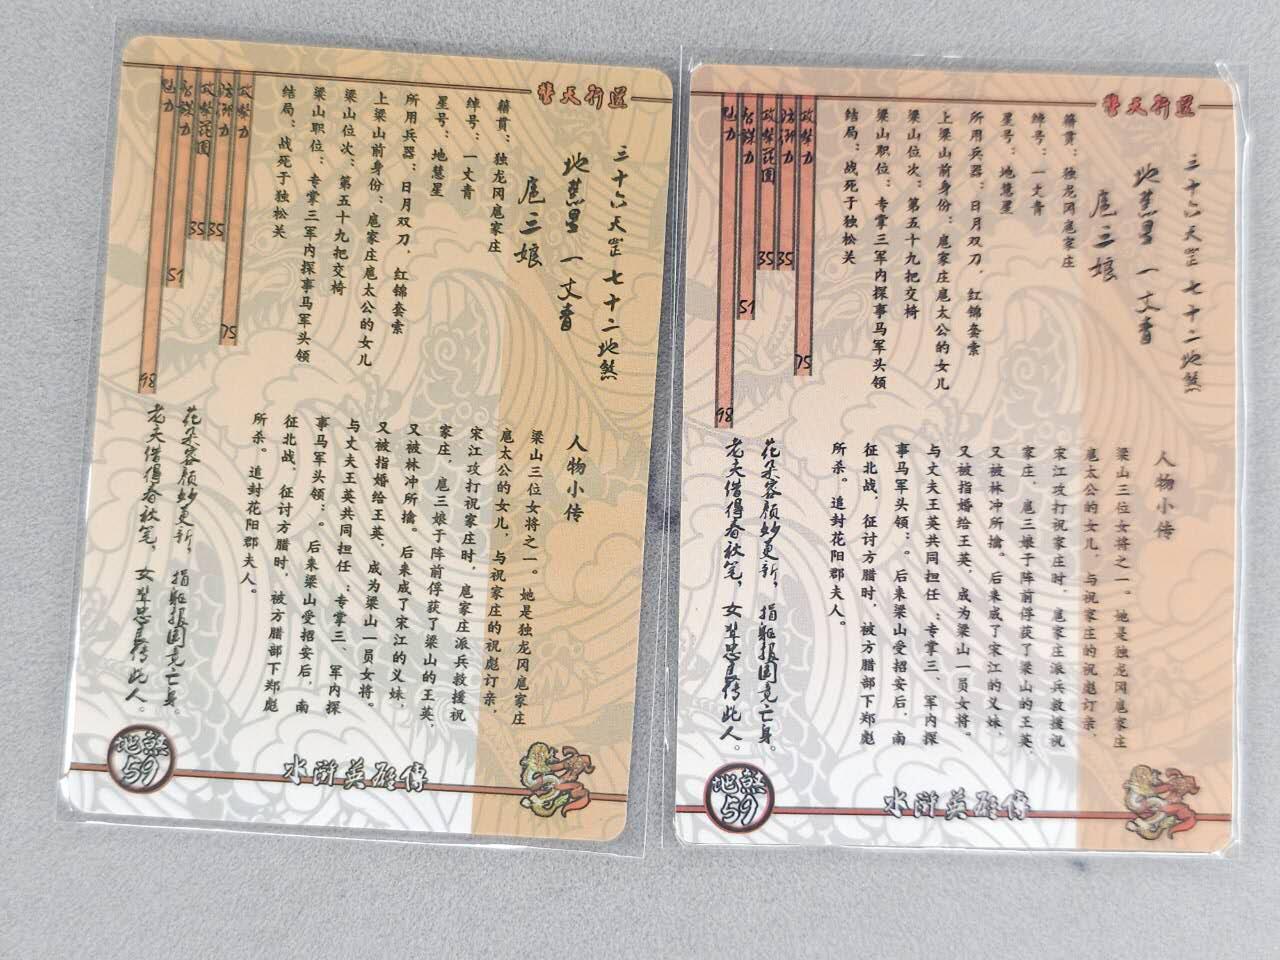 替天行道
三十六天罡七十二地煞
地慧星 一丈青
扈三娘
籍贯：独龙冈扈家庄
绰号：一丈青
星号：地慧星
所用兵器：日月双刀，红锦套索
上梁山前身份：扈家庄扈太公的女儿
梁山位次：第五十九把交椅
梁山职位：专掌三军内探事马军头领
结局：战死于独松关
攻击力 75
防御力 35
攻击范围 35
智谋力 51
魅力 98
人物小传
梁山三位女将之一。她是独龙冈扈家庄
扈太公的女儿，与祝家庄的祝彪订亲，
宋江攻打祝家庄时，扈家庄派兵救援祝
家庄，扈三娘于阵前俘获了梁山的王英，
又被林冲所擒。后来成了宋江的义妹，
又被指婚给王英，成为梁山一员女将。
与丈夫王英共同担任：专掌三、军内探
事马军头领：。后来梁山受招安后，南
征北战，征讨方腊时，被方腊部下郑彪
所杀。追封花阳郡夫人。
花朵容颜妙更新，捐躯报国竟亡身。
老夫借得春秋笔，女辈忠良传此人。
地煞
59
水浒英雄传
替天行道
三十六天罡七十二地煞
地慧星 一丈青
扈三娘
籍贯：独龙冈扈家庄
绰号：一丈青
星号：地慧星
所用兵器：日月双刀，红锦套索
上梁山前身份：扈家庄扈太公的女儿
梁山位次：第五十九把交椅
梁山职位：专掌三军内探事马军头领
结局：战死于独松关
攻击力 75
防御力 35
攻击范围 35
智谋力 51
魅力 98
人物小传
梁山三位女将之一。她是独龙冈扈家庄
扈太公的女儿，与祝家庄的祝彪订亲，
宋江攻打祝家庄时，扈家庄派兵救援祝
家庄，扈三娘于阵前俘获了梁山的王英，
又被林冲所擒。后来成了宋江的义妹，
又被指婚给王英，成为梁山一员女将。
与丈夫王英共同担任：专掌三、军内探
事马军头领：。后来梁山受招安后，南
征北战，征讨方腊时，被方腊部下郑彪
所杀。追封花阳郡夫人。
花朵容颜妙更新，捐躯报国竟亡身。
老夫借得春秋笔，女辈忠良传此人。
地煞
59
水浒英雄传